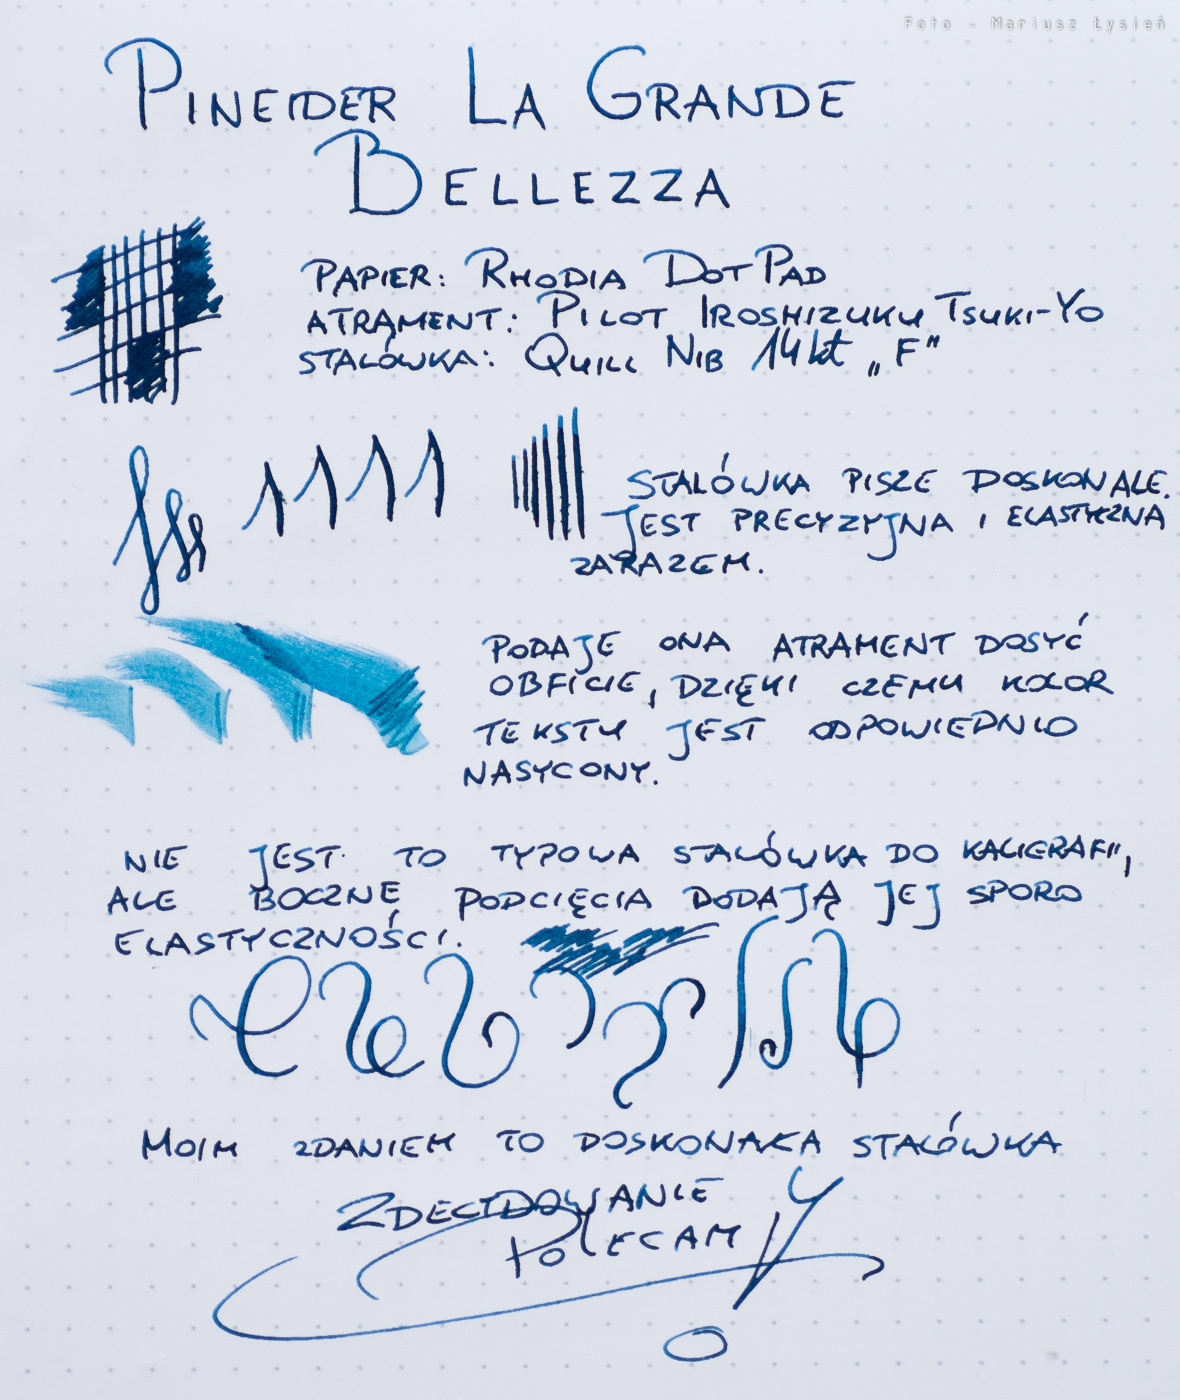 Foto - Mariusz Łysień
PINEIDER LA GRANDE
BELLEZZA
PAPIER: RHODIA DOTPAD
ATRAMENT: PILOT IROSHIZUKU TSUKI-YO
STALÓWKA: QUILL NIB 14kt „F"
STALÓWKA PISZE DOSKONALE.
JEST PRECYZYJNA I ELASTYCZNA
ZARAZEM.
PODAJE ONA ATRAMENT DOSYĆ
OBFICIE, DZIĘKI CZEMU KOLOR
TEKSTU JEST ODPOWIEDNIO
NASYCONY.
NIE JEST TO TYPOWA STALÓWKA DO KALIGRAFII,
ALE BOCZNE PODCIĘCIA DODAJĄ JEJ SPORO
ELASTYCZNOŚCI.
MOIM ZDANIEM TO DOSKONAŁA STALÓWKA
ZDECYDOWANIE
POLECAM!